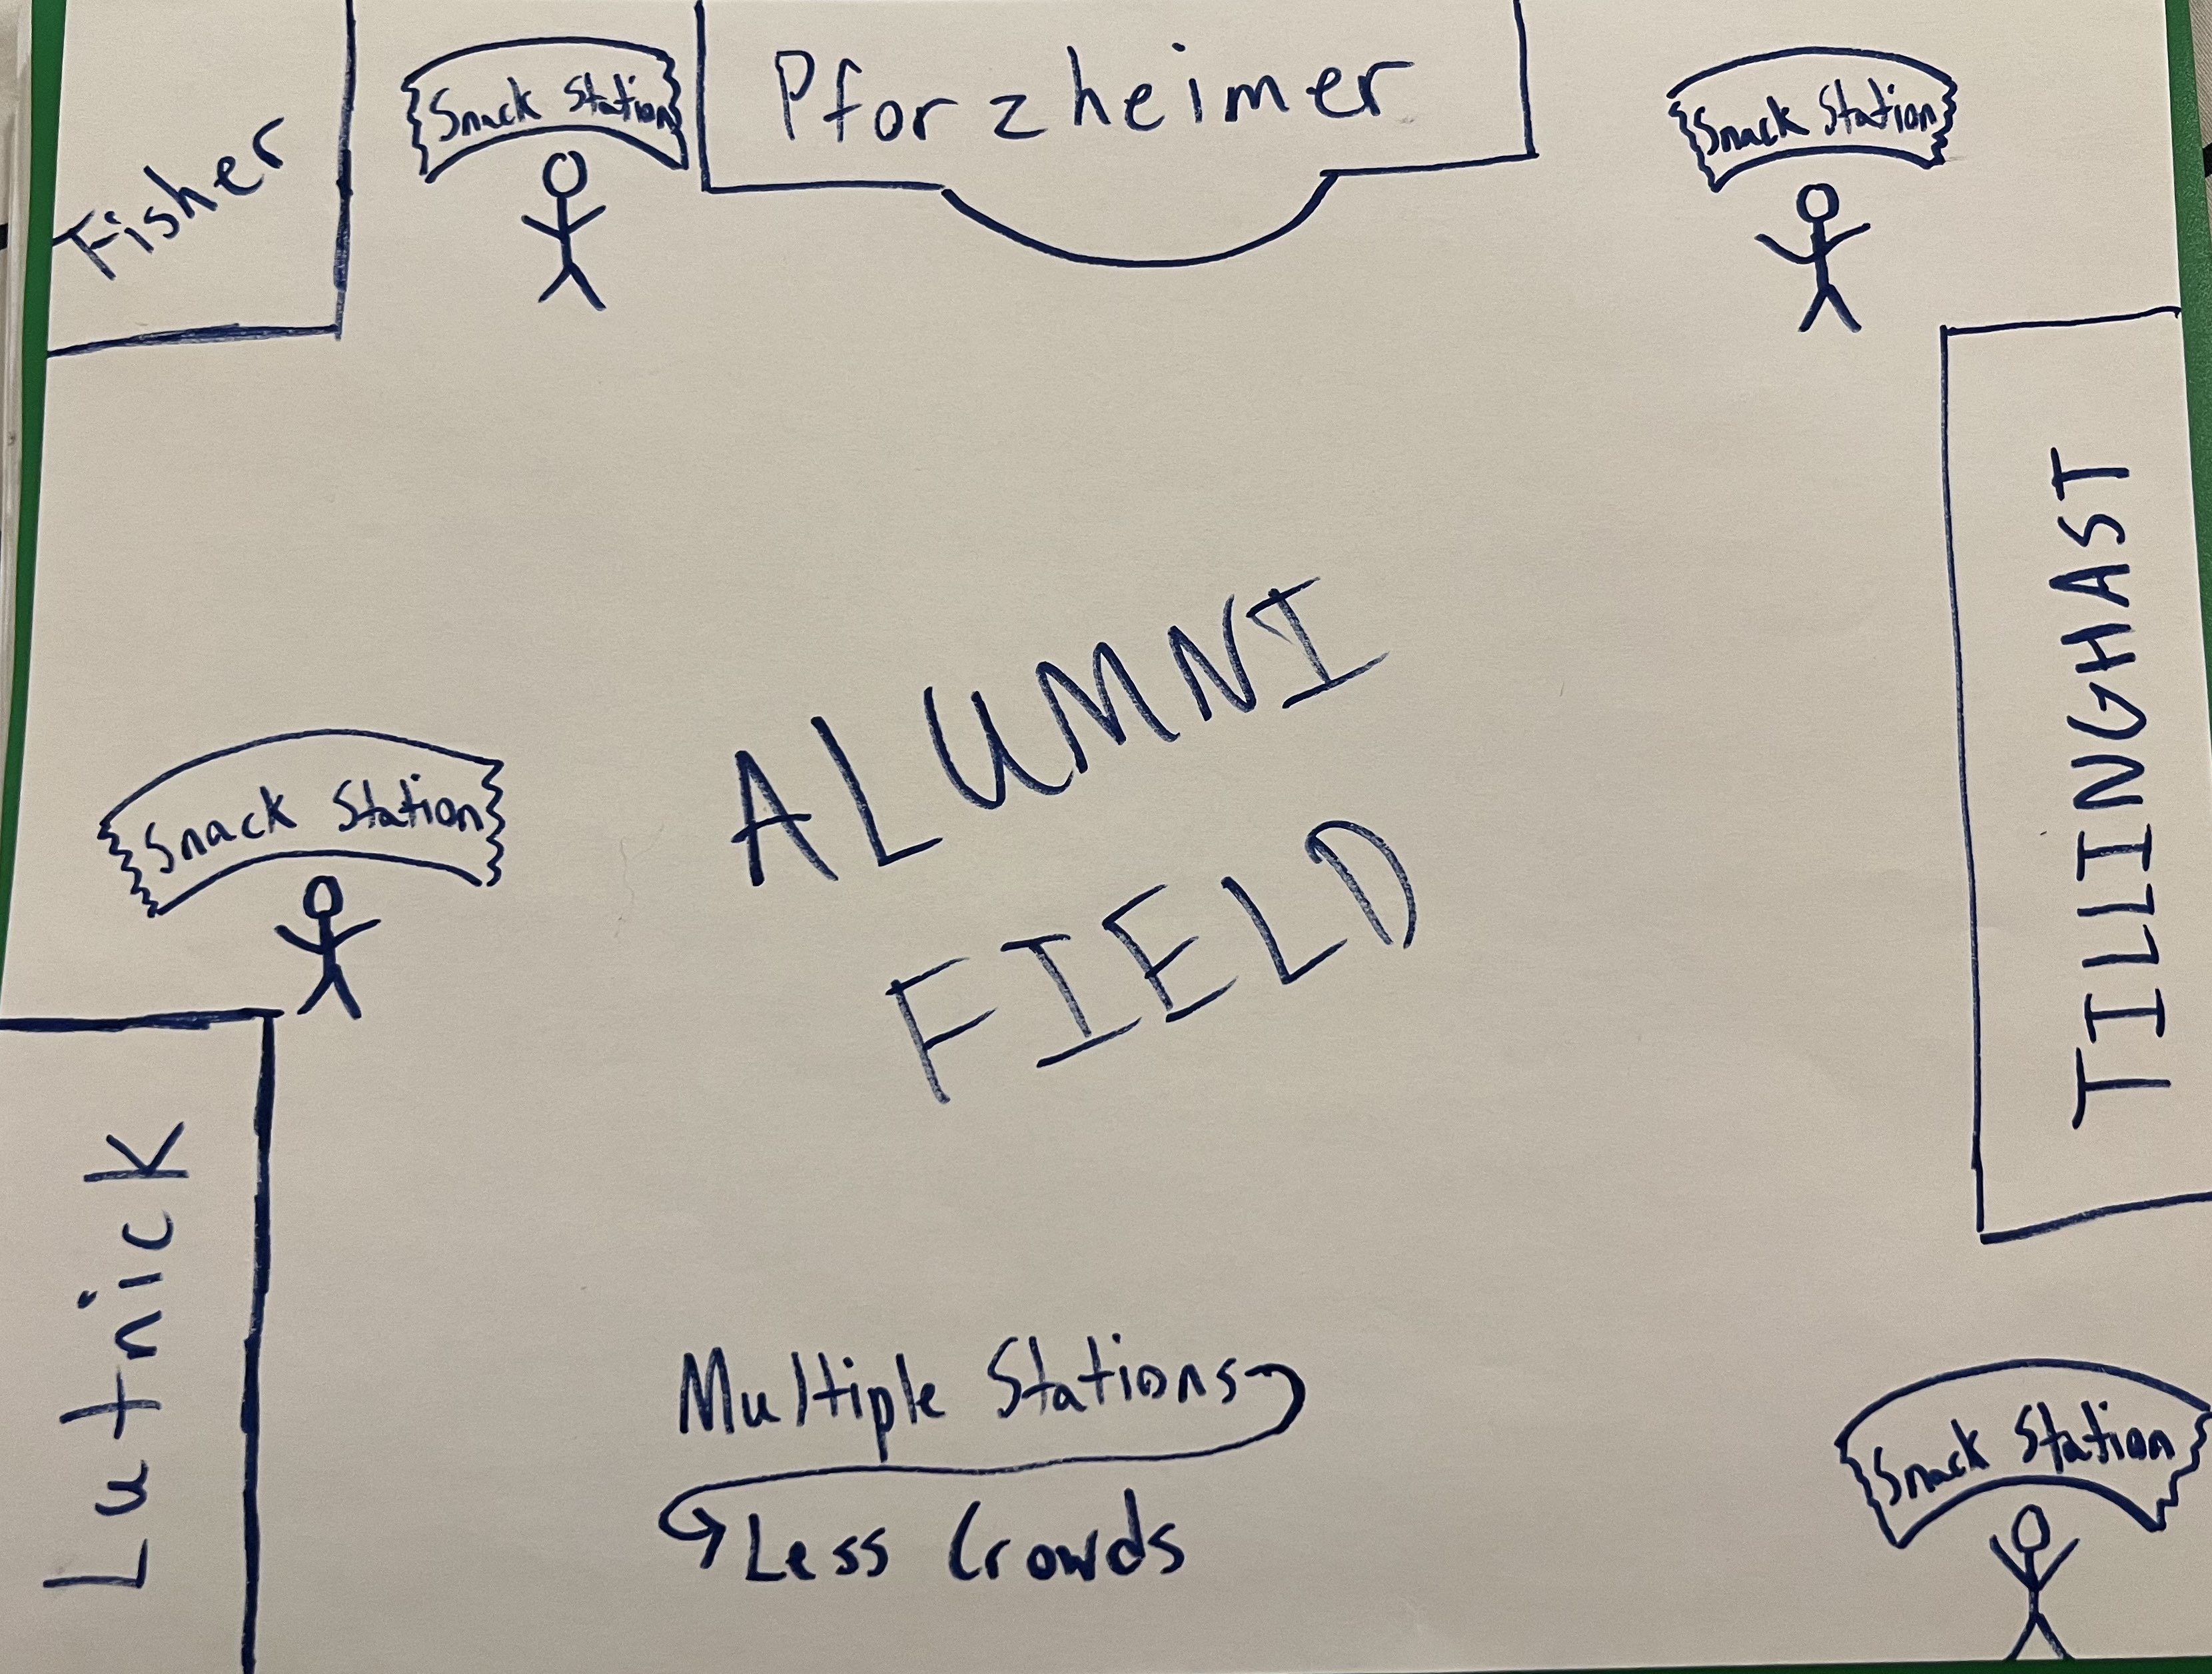 Fisher
Snack Station
Pforzheimer
Snack Station
TILLINGHAST
ALUMNI
FIELD
Snack Station
Lutnick
Multiple Stations
Less Crowds
Snack Station